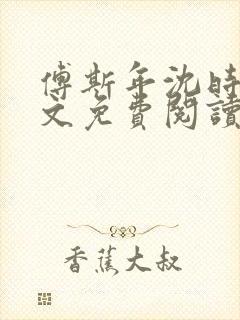 傅斯年沈時
文免費閱讀
香蕉大叔